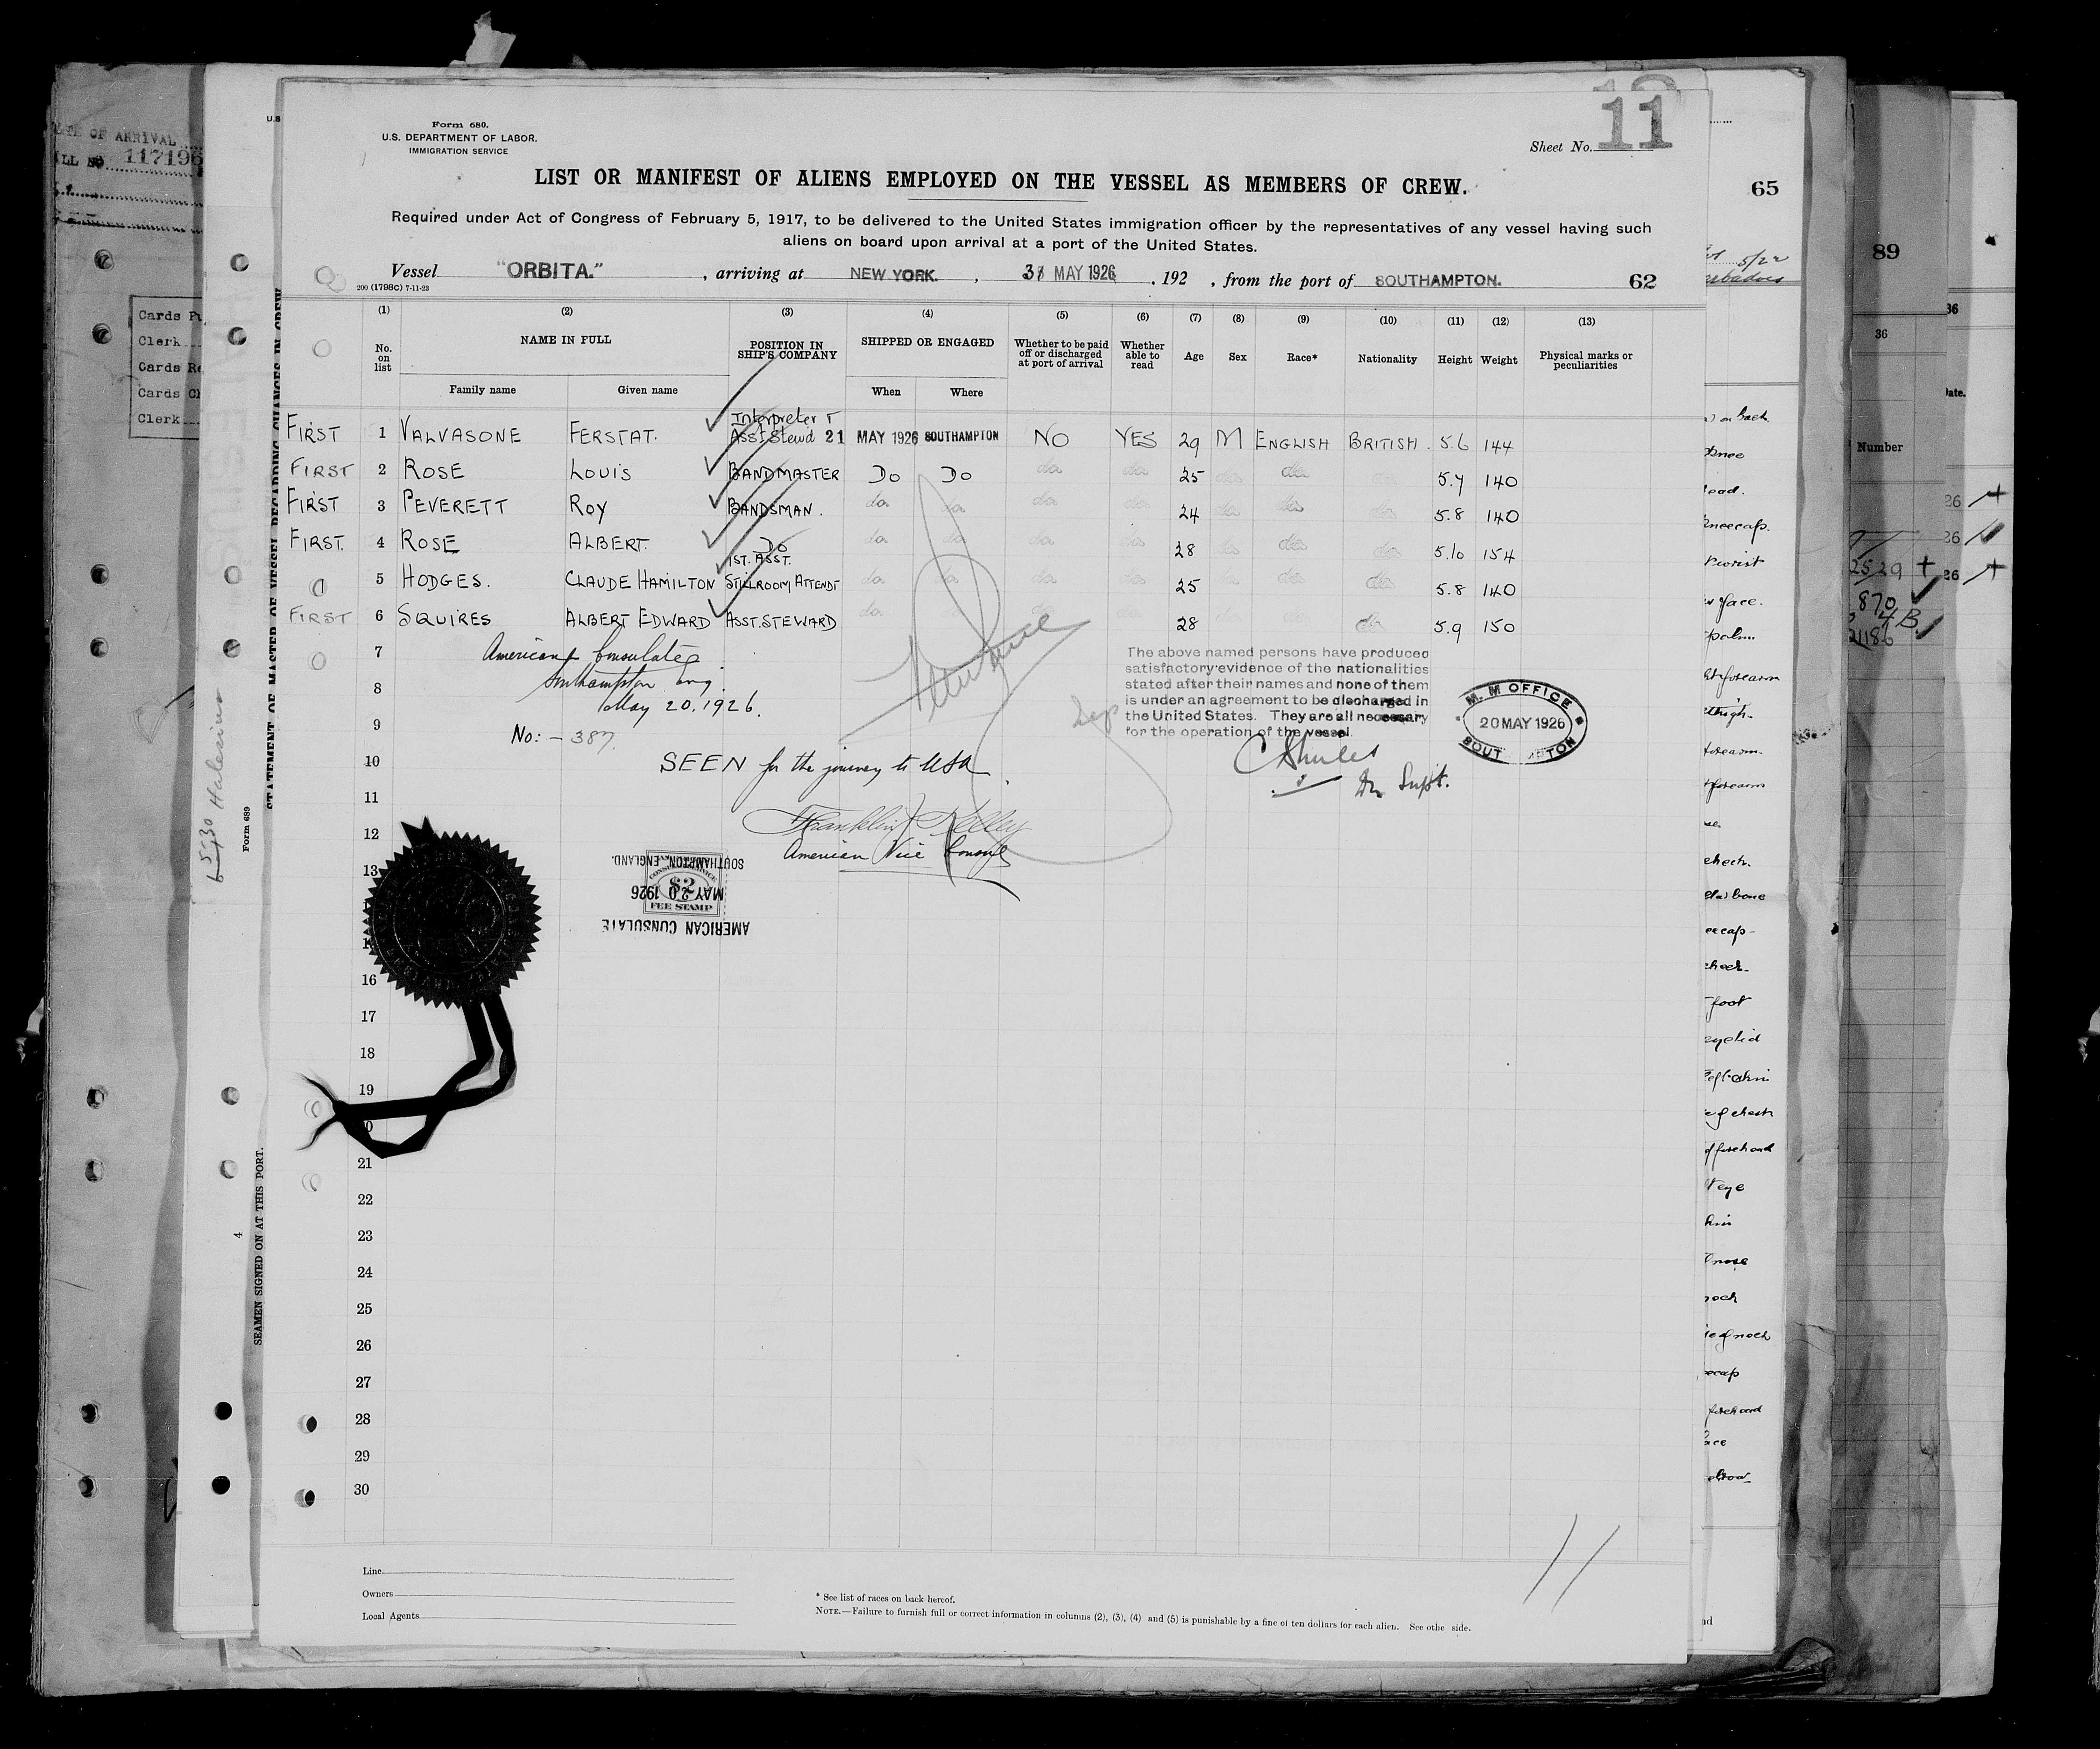 Form 680.
U.S. DEPARTMENT OF LABOR.
IMMIGRATION SERVICE
Sheet No. 11
LIST OR MANIFEST OF ALIENS EMPLOYED ON THE VESSEL AS MEMBERS OF CREW.
65
Required under Act of Congress of February 5, 1917, to be delivered to the United States immigration officer by the representatives of any vessel having such
aliens on board upon arrival at a port of the United States.
89
Vessel "ORBITA.", arriving at NEW YORK. , 31 MAY 1926, 192 , from the port of SOUTHAMPTON. 62
200 (1798C) 7-11-23
(1) (2) (3) (4) (5) (6) (7) (8) (9) (10) (11) (12) (13)
No. on list NAME IN FULL POSITION IN SHIP'S COMPANY SHIPPED OR ENGAGED Whether to be paid off or discharged at port of arrival Whether able to read Age Sex Race* Nationality Height Weight Physical marks or peculiarities
Family name Given name When Where
Interpreter &
FIRST 1 VALVASONE FERSTAT. ASST STEWD 21 MAY 1926 SOUTHAMPTON NO YES 29 M ENGLISH BRITISH. 5.6 144
FIRST 2 ROSE LOUIS BANDMASTER DO DO do do 25 do do do 5.7 140
FIRST 3 PEVERETT ROY BANDSMAN. do do do do 24 do do do 5.8 140
FIRST. 4 ROSE ALBERT. DO do do do do 28 do do do 5.10 154
1ST. ASST.
5 HODGES. CLAUDE HAMILTON STILLROOM ATTENDT do do do do 25 do do do 5.8 140
FIRST 6 SQUIRES ALBERT EDWARD ASST. STEWARD do 28 do 5.9 150
7 American Consulate
8 Southampton Eng.
May 20, 1926.
9
No: - 387.
10 SEEN for the journey to USA
The above named persons have produced
satisfactory evidence of the nationalities
stated after their names and none of them
is under an agreement to be discharged in
the United States. They are all necessary
for the operation of the vessel.
Supt.
M. M OFFICE
20 MAY 1926
11
12 Franklin Kelley
American Vice Consul
13
SOUTHAMPTON, ENGLAND.
$2
MAY 20 1926
FEE STAMP
AMERICAN CONSULATE
16
17
18
19
21
22
23
24
25
26
27
28
29
30
11
Line
Owners
Local Agents
* See list of races on back hereof.
NOTE.—Failure to furnish full or correct information in columns (2), (3), (4) and (5) is punishable by a fine of ten dollars for each alien. See othe side.
117196
Clerk
Clerk
Form 689
SEAMEN SIGNED ON AT THIS PORT.
4
36
Number